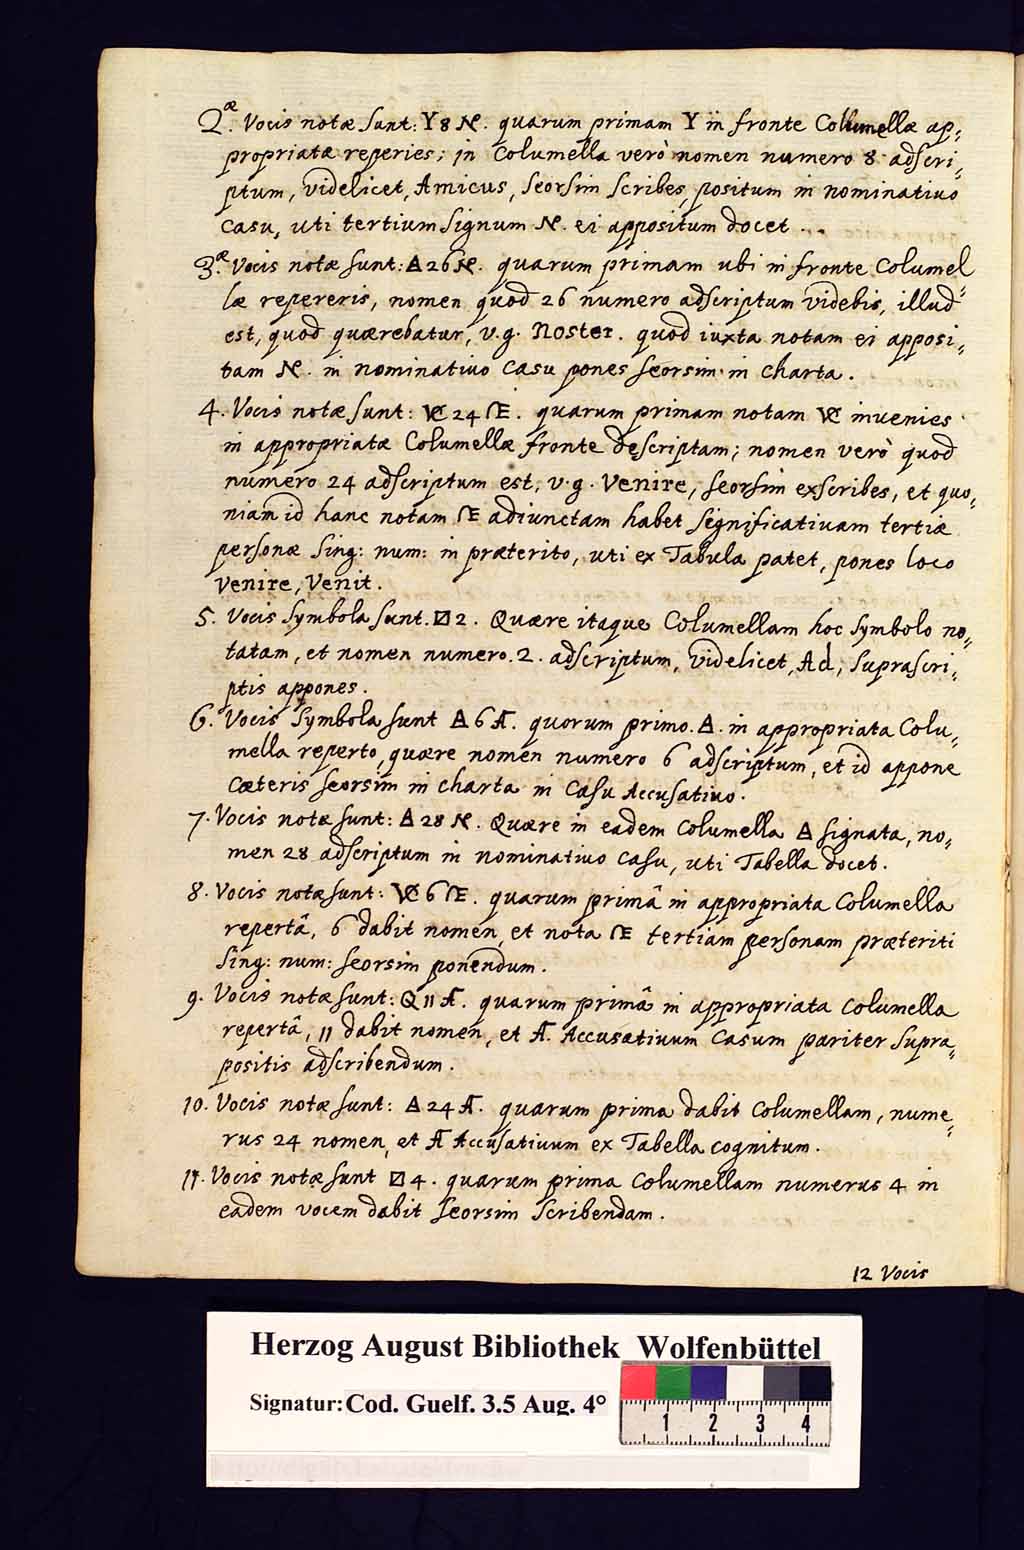 2.æ Vocis notæ sunt: Y 8 N. quarum primam Y in fronte Collumellæ ap-
propriatæ reperies; in Columella verò nomen numero 8 adscri-
ptum, videlicet, Amicus, seorsim scribes, positum in nominativo
casu, uti tertium signum N. ei appositum docet . .
3.æ Vocis notæ sunt: Δ 26 N. quarum primam ubi in fronte Columel-
læ repereris, nomen quod 26 numero adscriptum videbis, illud
est, quod quærebatur, v.g. Noster. quod iuxta notam ei apposi-
tam N. in nominativo casu pones seorsim in charta.
4. Vocis notæ sunt: 24 . quarum primam notam invenies
in appropriatæ Columellæ fronte descriptam; nomen verò quod
numero 24 adscriptum est, v.g. Venire, seorsim exscribes, et quo-
niam id hanc notam adiunctam habet significativam tertiæ
personæ sing: num: in præterito, uti ex Tabula patet, pones loco
Venire, Venit.
5. Vocis symbola sunt. ⧄ 2. Quære itaque Columellam hoc symbolo no-
tatam, et nomen numero. 2. adscriptum, videlicet, Ad, suprascri-
ptis appones.
6. Vocis symbola sunt Δ 6 A. quorum primo. Δ. in appropriata Colu-
mella reperto, quære nomen numero 6 adscriptum, et id appone
cæteris seorsim in charta in casu Accusativo.
7. Vocis notæ sunt: Δ 28 N. Quære in eadem Columella Δ signata, no-
men 28 adscriptum in nominativo casu, uti Tabella docet.
8. Vocis notæ sunt: 6 . quarum primâ in appropriata Columella
repertâ, 6 dabit nomen, et nota tertiam personam præteriti
sing: num: seorsim ponendum.
9. Vocis notæ sunt: Q 11 A. quarum primâ in appropriata Columella
repertâ, 11 dabit nomen, et A. Accusativum Casum pariter supra-
positis adscribendum.
10. Vocis notæ sunt: Δ 24 A. quarum prima dabit Columellam, nume-
rus 24 nomen, et A Accusativum ex Tabella cognitum.
11. Vocis notæ sunt ⧄ 4. quarum prima Columellam numerus 4 in
eadem vocem dabit seorsim scribendam.
12 Vocis
Herzog August Bibliothek Wolfenbüttel
Signatur: Cod. Guelf. 3.5 Aug. 4°
1 2 3 4